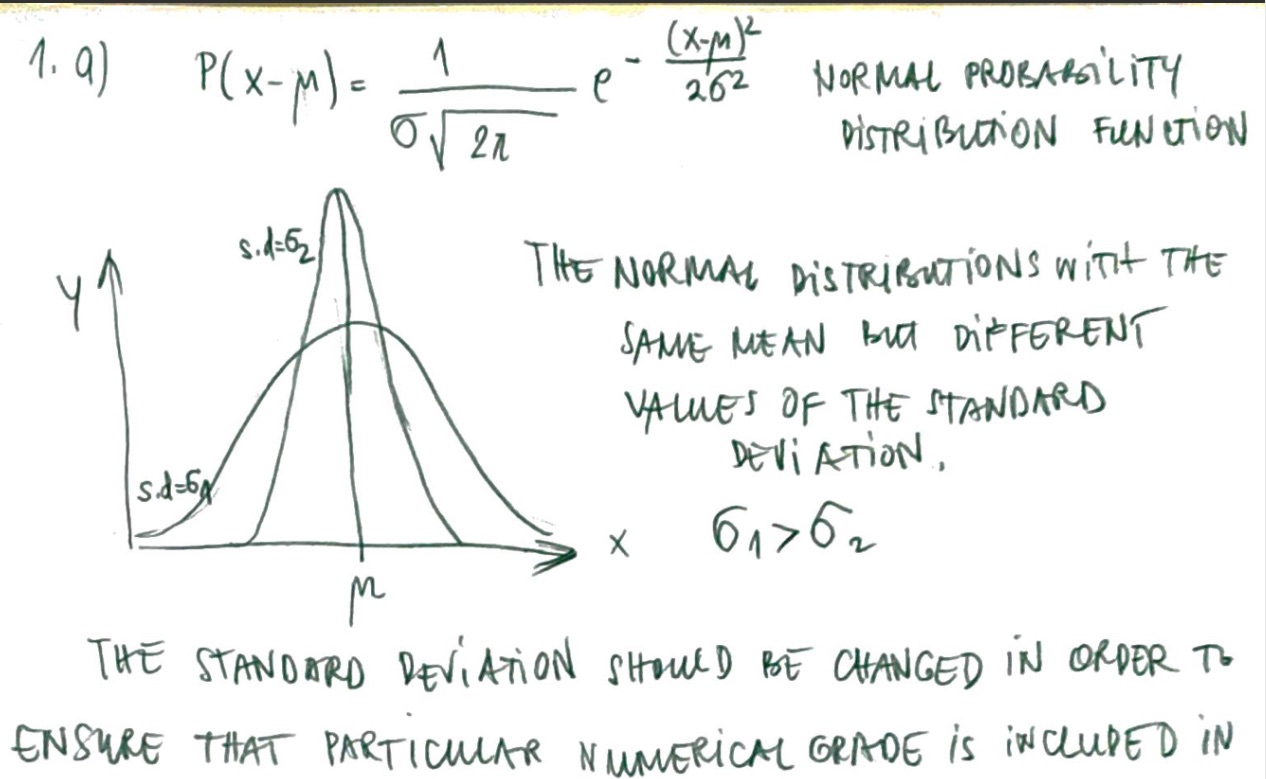 1. a) P(x-μ) = 1/(σ√2π) e^-(x-μ)²/2σ² NORMAL PROBABILITY
DISTRIBUTION FUNCTION
s.d=σ2
Y
THE NORMAL DISTRIBUTIONS WITH THE
SAME MEAN BUT DIFFERENT
VALUES OF THE STANDARD
DEVIATION.
s.d=σ1
x
σ1>σ2
μ
THE STANDARD DEVIATION SHOULD BE CHANGED IN ORDER TO
ENSURE THAT PARTICULAR NUMERICAL GRADE IS INCLUDED IN